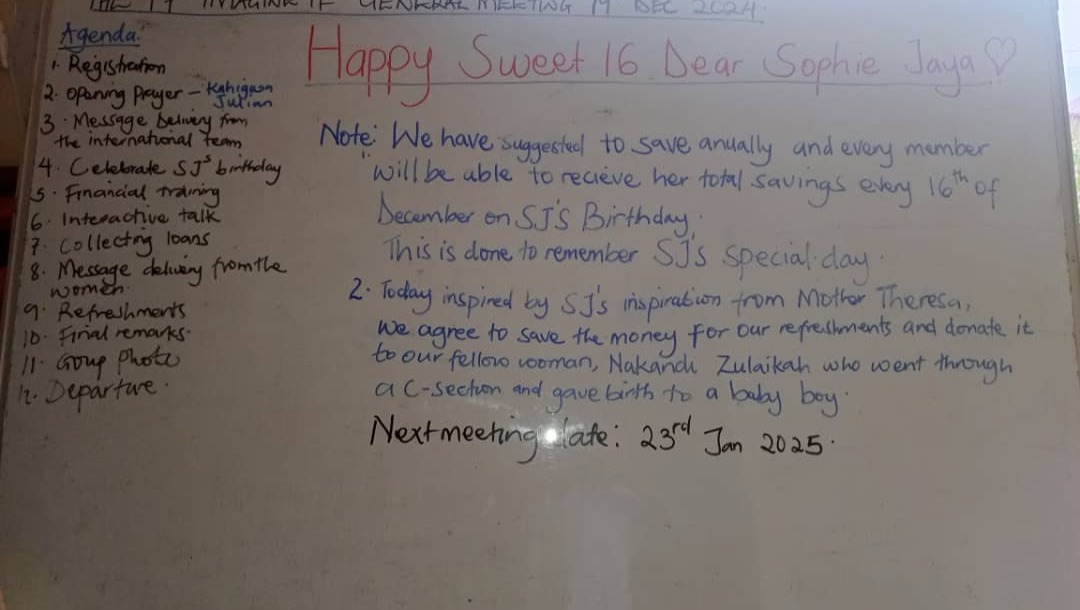 IMAGINE IF GENERAL MEETING 19 DEC 2024.
Agenda:
1. Registration
2. Opening Prayer –
Julian
3. Message Delivery from
the international team
4. Celebrate SJ's birthday
5. Financial training
6. Interactive talk
7. Collecting loans
8. Message delivery from the
women.
9. Refreshments
10. Final remarks.
11. Group Photo
12. Departure.
Happy Sweet 16 Dear Sophie Jaya ♡
Note: We have suggested to save anually and every member
will be able to recieve her total savings every 16th of
December on SJ'S Birthday.
This is done to remember SJ's special day.
2. Today inspired by SJ's inspiration from Mother Theresa,
we agree to save the money for our refreshments and donate it
to our fellow woman, Nakandi Zulaikah who went through
a C-section and gave birth to a baby boy.
Next meeting date: 23rd Jan 2025.